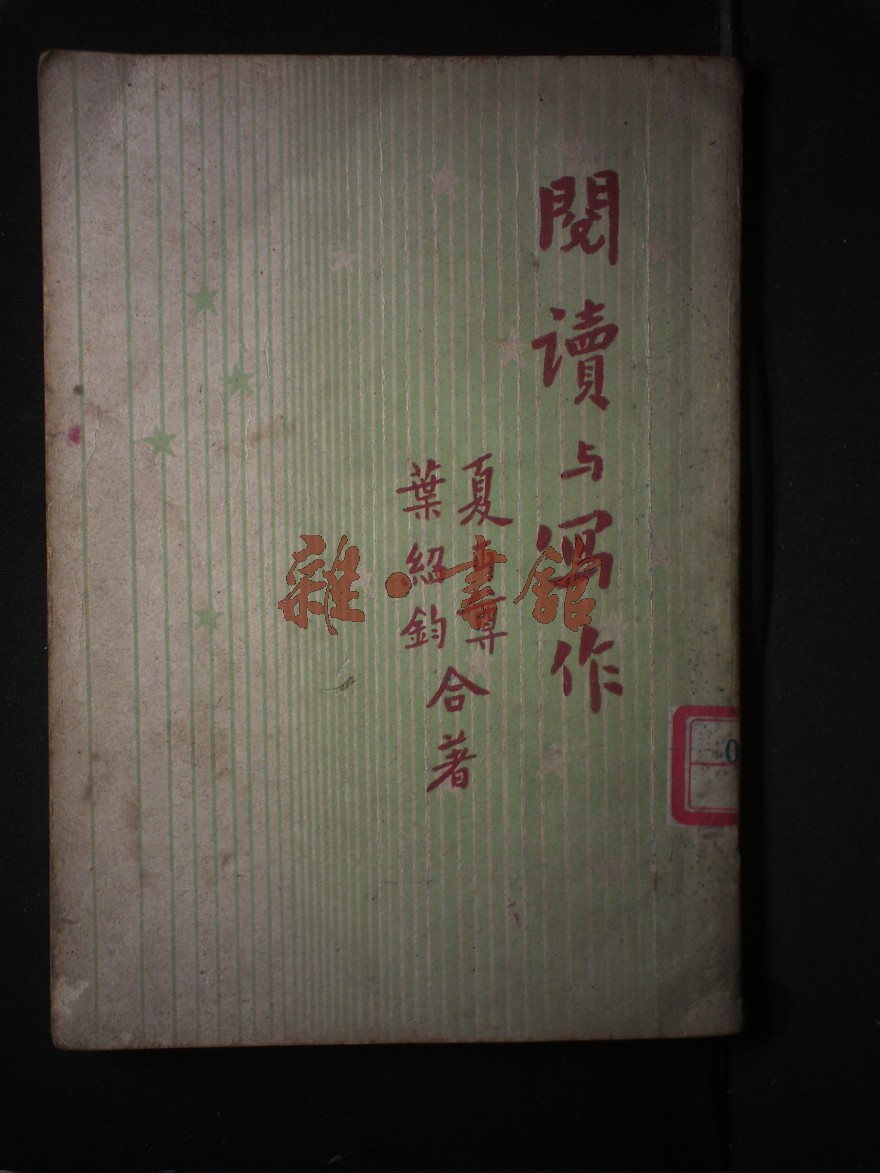 閱讀与写作
夏丏尊
葉紹鈞
合著
雜·書館
0